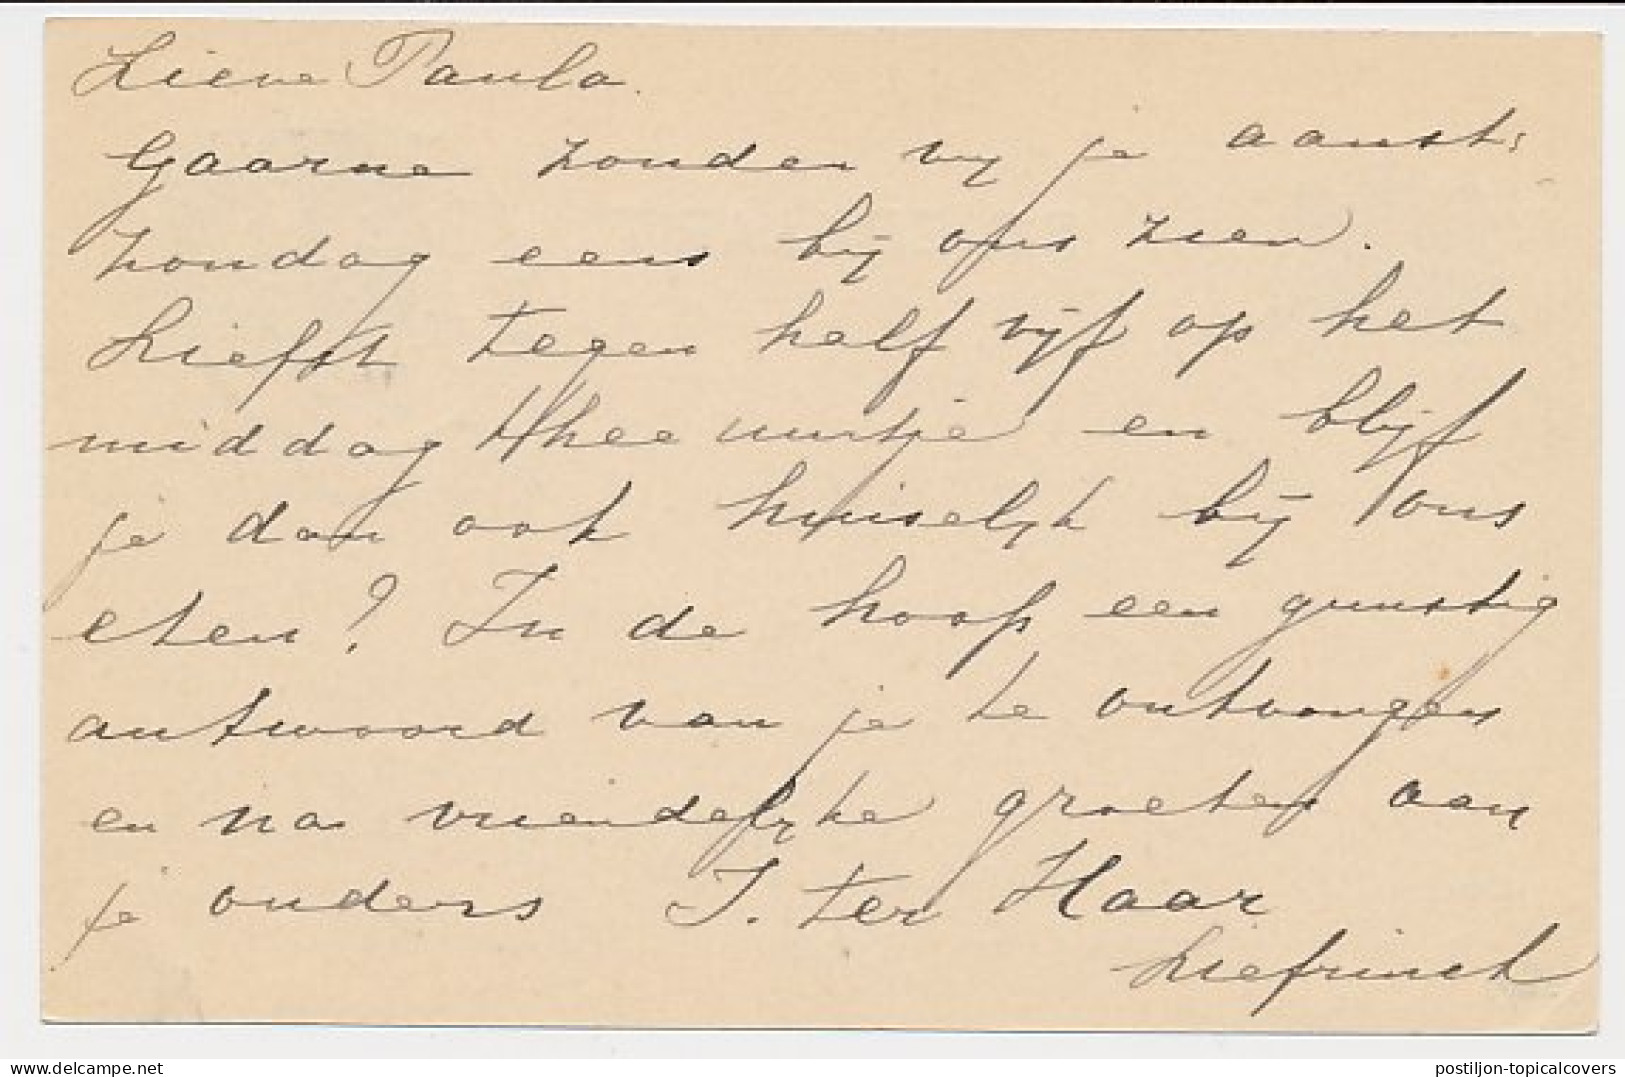 Lieve Paula.
Gaarne zouden wij je aanst:
zondag eens bij ons zien.
Liefst tegen half vijf op het
middag thee uurtje en blijf
je dan ook huiselijk bij ons
eten? In de hoop een gunstig
antwoord van je te ontvangen
en na vriendelijke groeten aan
je ouders J. ter Haar
Liefrinck
www.delcampe.net
postiljon-topicalcovers